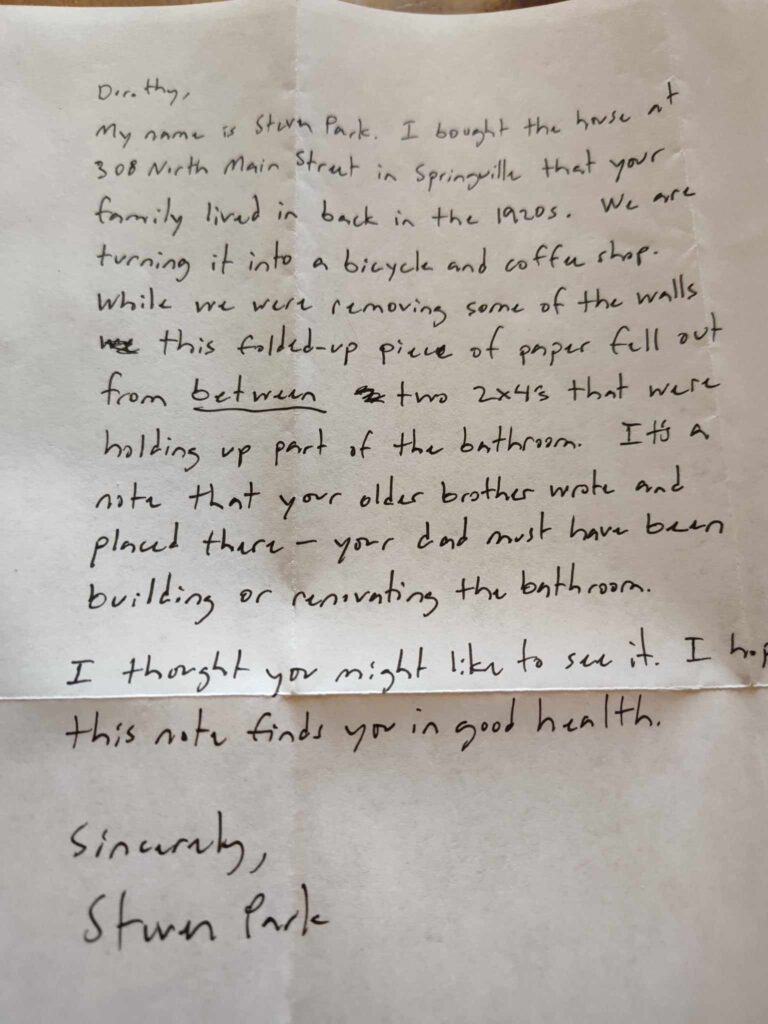 Dorothy,
My name is Steven Park. I bought the house at
308 North Main Street in Springville that your
family lived in back in the 1920s. We are
turning it into a bicycle and coffee shop.
While we were removing some of the walls
this folded-up piece of paper fell out
from between two 2x4's that were
holding up part of the bathroom. It's a
note that your older brother wrote and
placed there – your dad must have been
building or renovating the bathroom.
I thought you might like to see it. I hop
this note finds you in good health.
Sincerely,
Steven Park